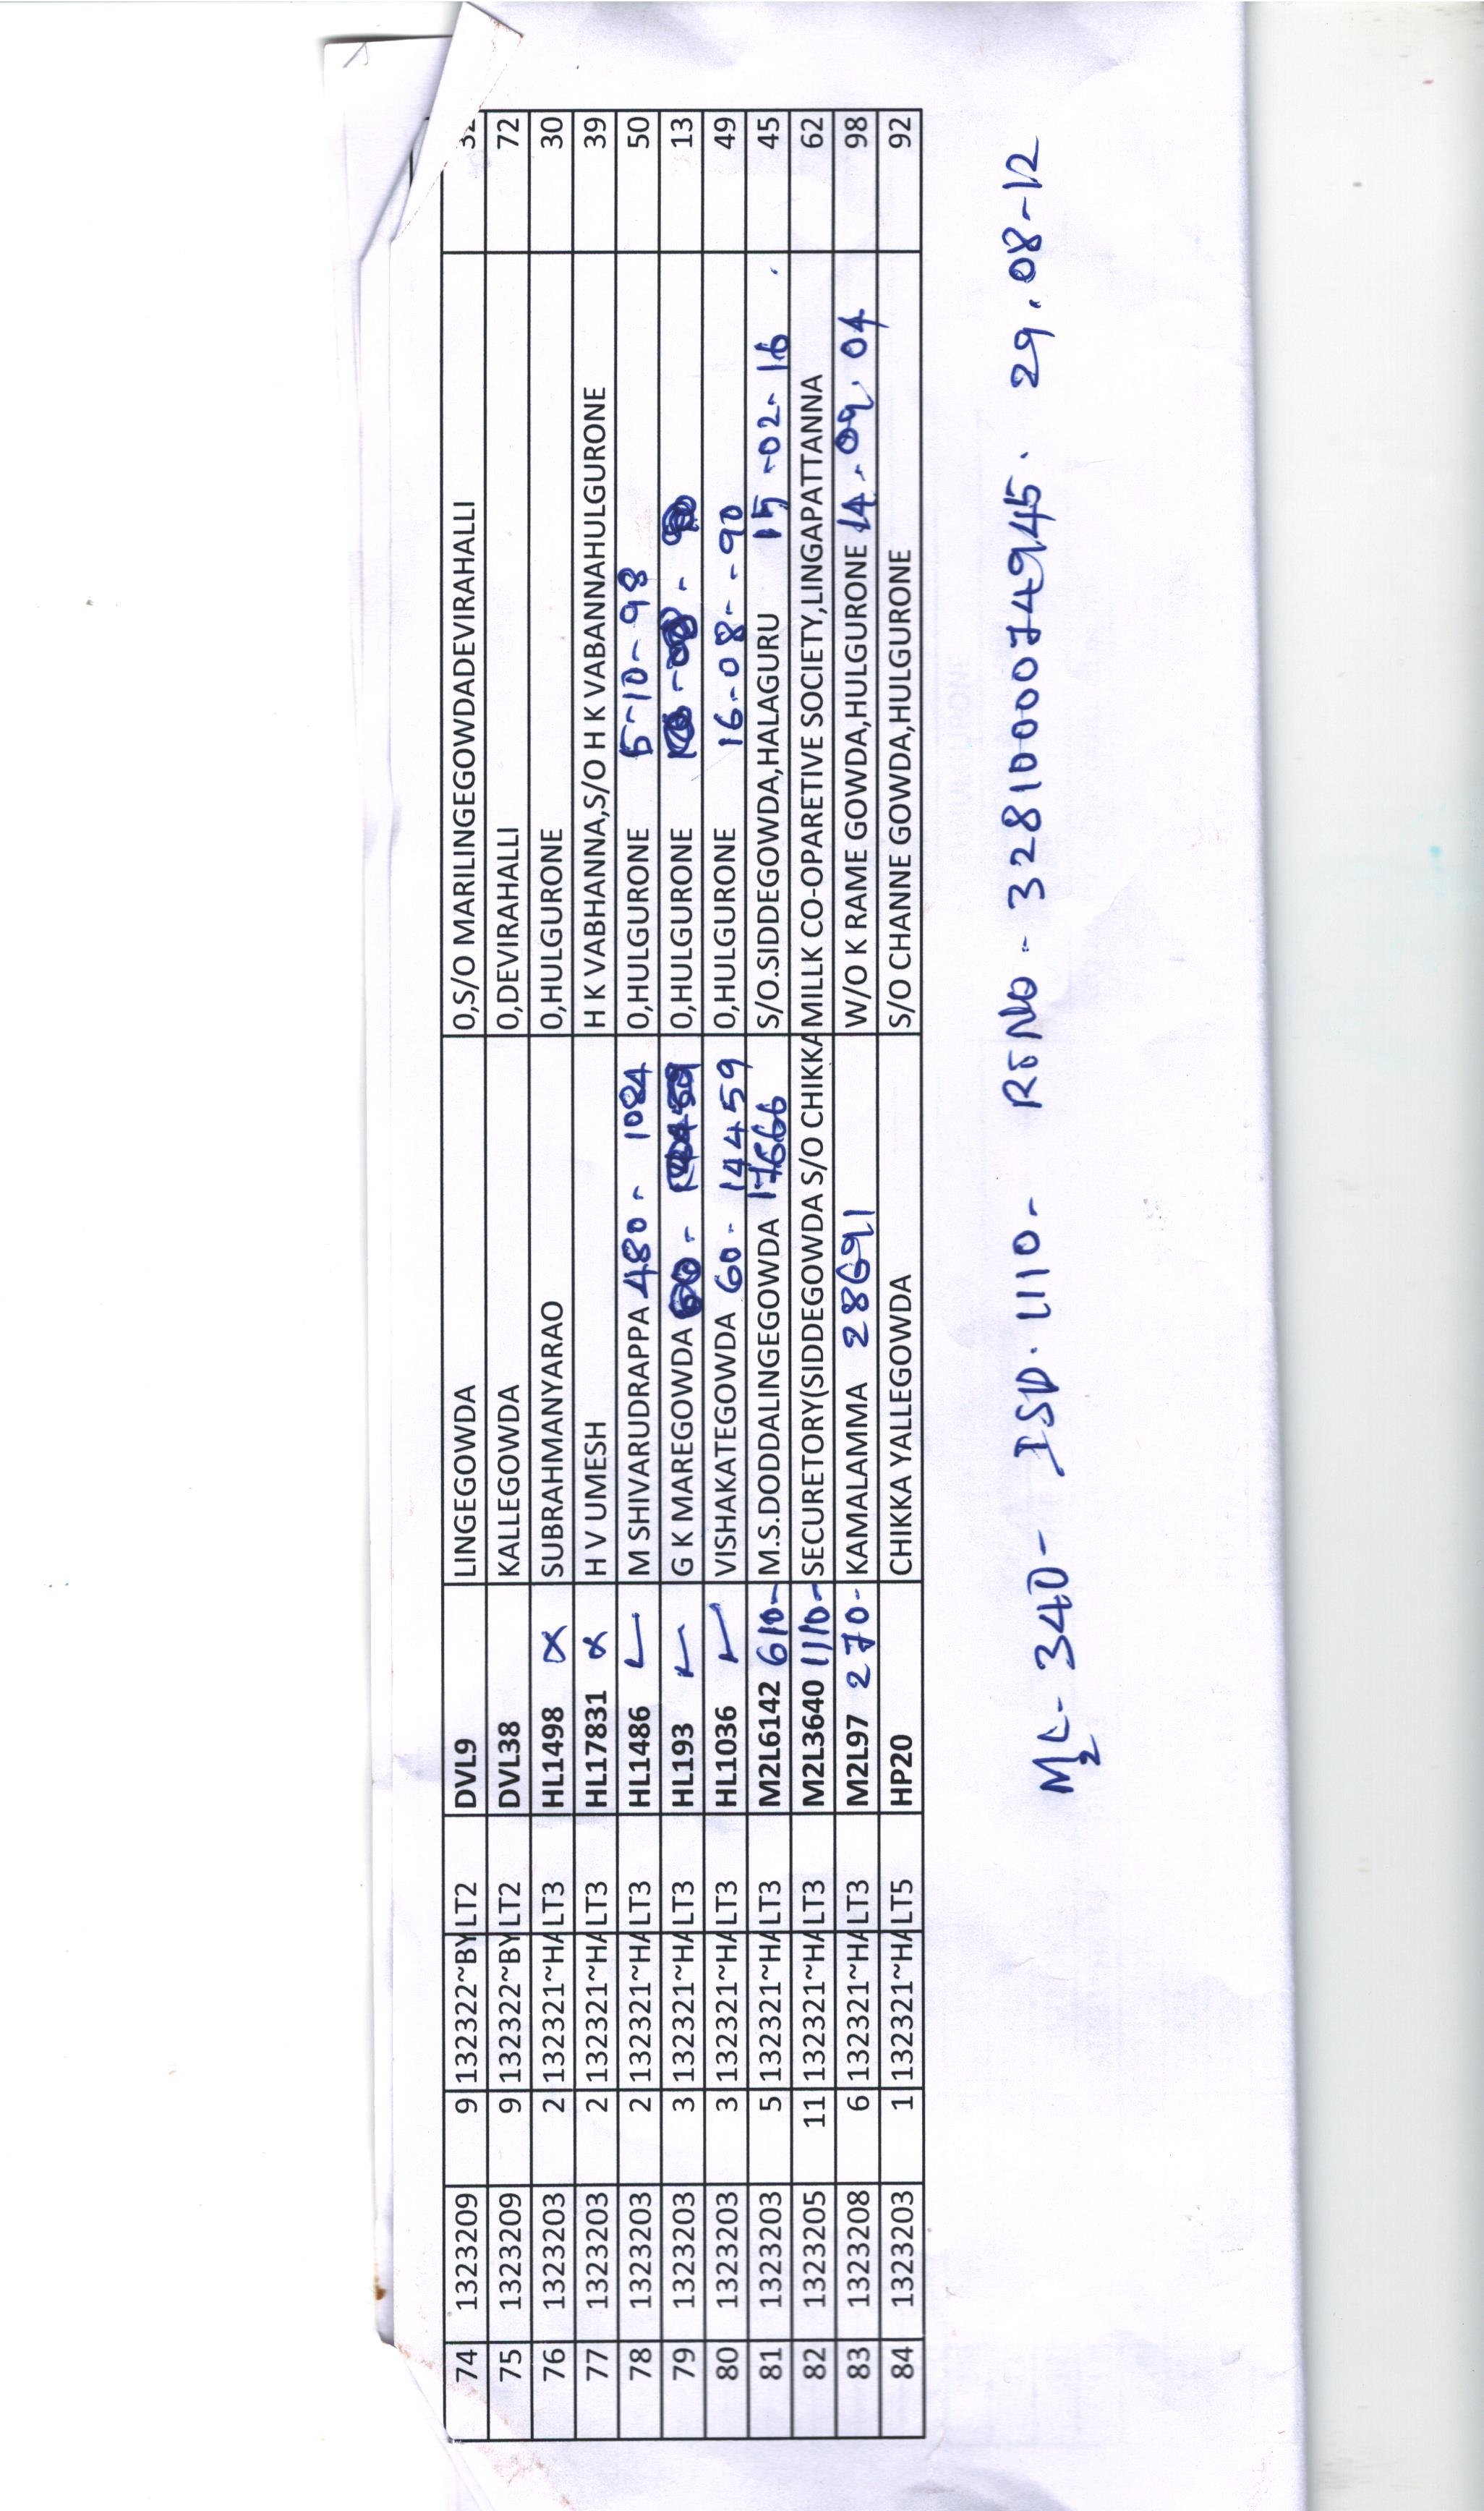 74 1323209 9 132322~BY LT2 DVL9 LINGEGOWDA 0,S/O MARILINGEGOWDADEVIRAHALLI
75 1323209 9 132322~BY LT2 DVL38 KALLEGOWDA 0,DEVIRAHALLI 72
76 1323203 2 132321~HA LT3 HL1498 x SUBRAHMANYARAO 0,HULGURONE 30
77 1323203 2 132321~HA LT3 HL17831 x H V UMESH H K VABHANNA,S/O H K VABANNAHULGURONE 39
78 1323203 2 132321~HA LT3 HL1486 M SHIVARUDRAPPA 480 - 1084 0,HULGURONE 5-10-98 50
79 1323203 3 132321~HA LT3 HL193 G K MAREGOWDA 0,HULGURONE 13
80 1323203 3 132321~HA LT3 HL1036 VISHAKATEGOWDA 60 - 14459 0,HULGURONE 16-08--90 49
81 1323203 5 132321~HA LT3 M2L6142 610- M.S.DODDALINGEGOWDA 17666 S/O.SIDDEGOWDA,HALAGURU 15-02-16 45
82 1323205 11 132321~HA LT3 M2L3640 1110- SECURETORY(SIDDEGOWDA S/O CHIKKA MILLK CO-OPARETIVE SOCIETY,LINGAPATTANNA 62
83 1323208 6 132321~HA LT3 M2L97 270- KAMALAMMA 28691 W/O K RAME GOWDA,HULGURONE 14.09.04 98
84 1323203 1 132321~HA LT5 HP20 CHIKKA YALLEGOWDA S/O CHANNE GOWDA,HULGURONE 92
M2L- 340- ISD. 1110- R5NO - 3281000074945. 29.08-12